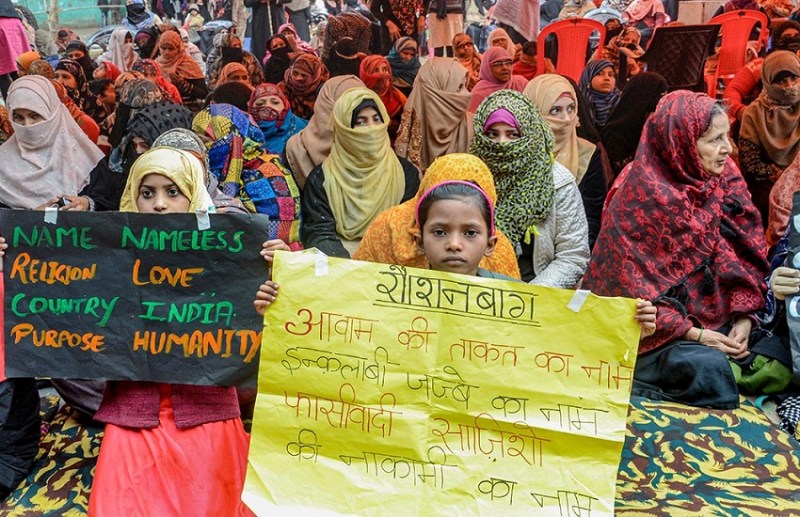 NAME NAMELESS
RELIGION LOVE
COUNTRY INDIA
PURPOSE HUMANITY
रौशनबाग
आवाम की ताकत का नाम
इन्कलाबी जज़्बे का नाम
फासीवादी साज़िशो
की नाकामी का नाम